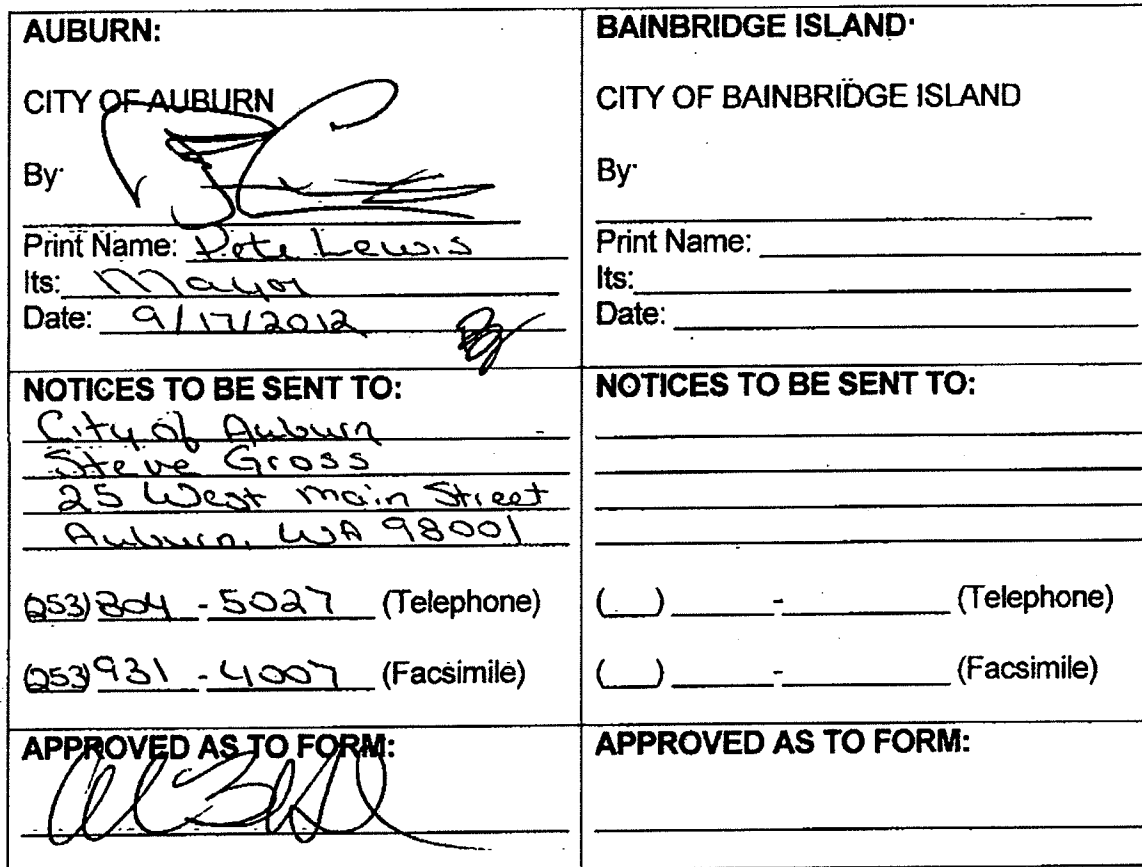 AUBURN:
CITY OF AUBURN
By:
Print Name: Pete Lewis
Its: Mayor
Date: 9/17/2012
NOTICES TO BE SENT TO:
City of Auburn
Steve Gross
25 West Main Street
Auburn, WA 98001
(253) 804 - 5027 (Telephone)
(253) 931 - 4007 (Facsimile)
APPROVED AS TO FORM:
BAINBRIDGE ISLAND:
CITY OF BAINBRIDGE ISLAND
By:
Print Name:
Its:
Date:
NOTICES TO BE SENT TO:
( ) - (Telephone)
( ) - (Facsimile)
APPROVED AS TO FORM: